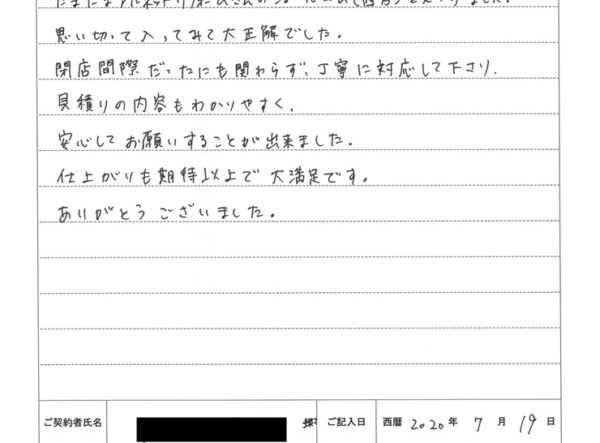 思い切って入ってみて大正解でした。
閉店間際だったにも関わらず、丁寧に対応して下さり、
見積りの内容もわかりやすく、
安心してお願いすることが出来ました。
仕上がりも期待以上で大満足です。
ありがとうございました。
ご契約者氏名 様 ご記入日 西暦 2020 年 7 月 19 日